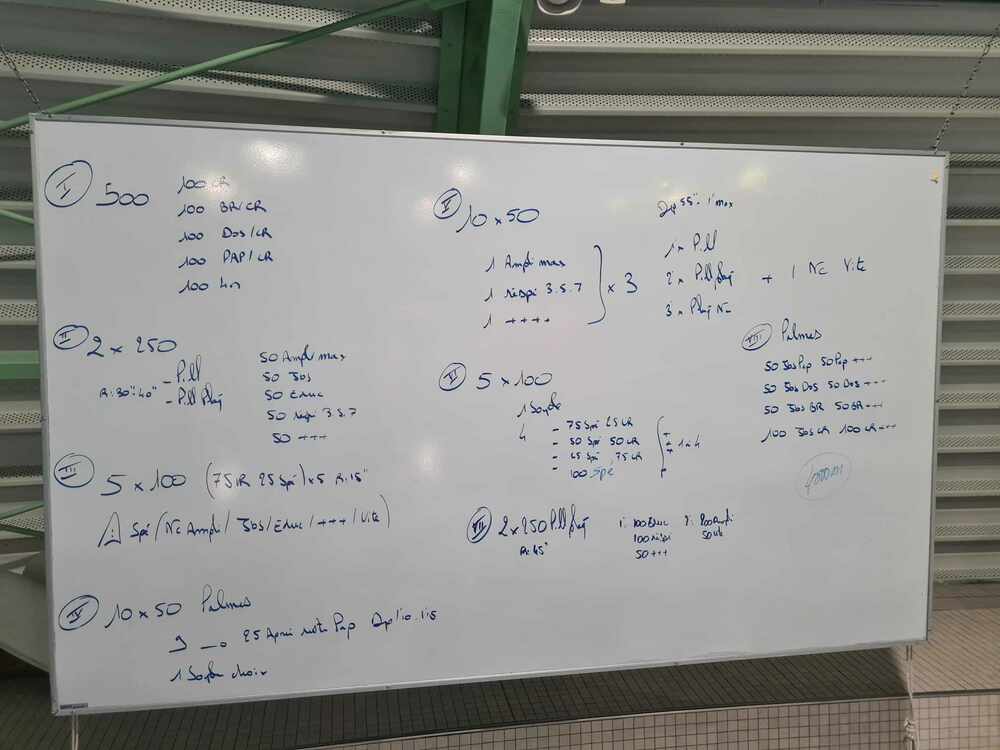 I 500
100 CR
100 BR/CR
100 DOS/CR
100 PAP/CR
100 4n
II 2 x 250
R: 30"-40"
- Pull
- Pull Plaq
50 Ampli max
50 Jbs
50 Educ
50 respi 3.5.7
50 +++
III 5 x 100 (75 CR 25 Spé) x 5 R: 15"
Spé (Nc Ampli / Jbs / Educ / +++ / Vite)
IV 10 x 50 Palmes
9 → 25 Apnée Pap
1 Souple choix
10 x 50 Dep 55" - 1' max
1 Ampli max
1 respi 3.5.7
1 ++++
x 3
1: Pull
2: Pull Plaq
3: Plaq Nc
+ 1 Nc Vite
VI 5 x 100
1 Souple
4
- 75 Spé 25 CR
- 50 Spé 50 CR
- 25 Spé 75 CR
- 100 Spé
1 à 4
VII 2 x 250 Pull Plaq
R: 45"
1: 100 Educ
100 respi
50 +++
2: 200 Ampli
50 Vite
VIII Palmes
50 Jbs Pap 50 Pap +++
50 Jbs Dos 50 Dos +++
50 Jbs BR 50 BR +++
100 Jbs CR 100 CR +++
4000m